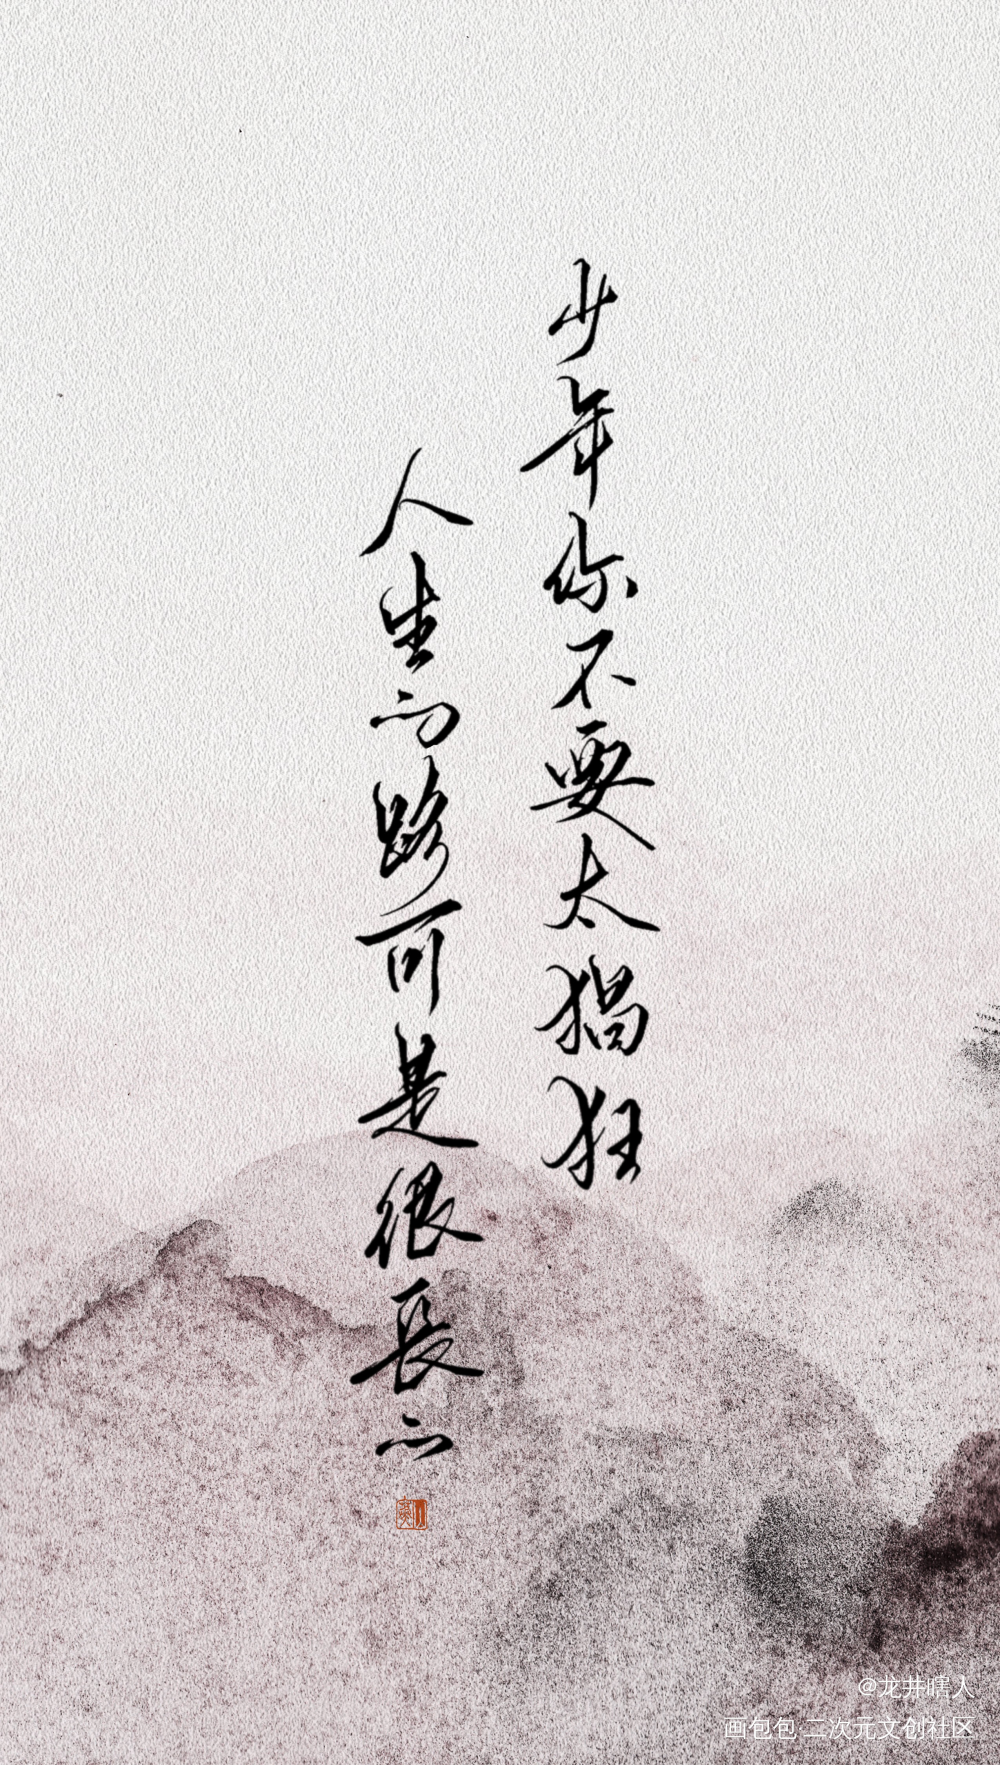 少年你不要太猖狂
人生的路可是很長
@龙井瞎人
画包包·二次元文创社区